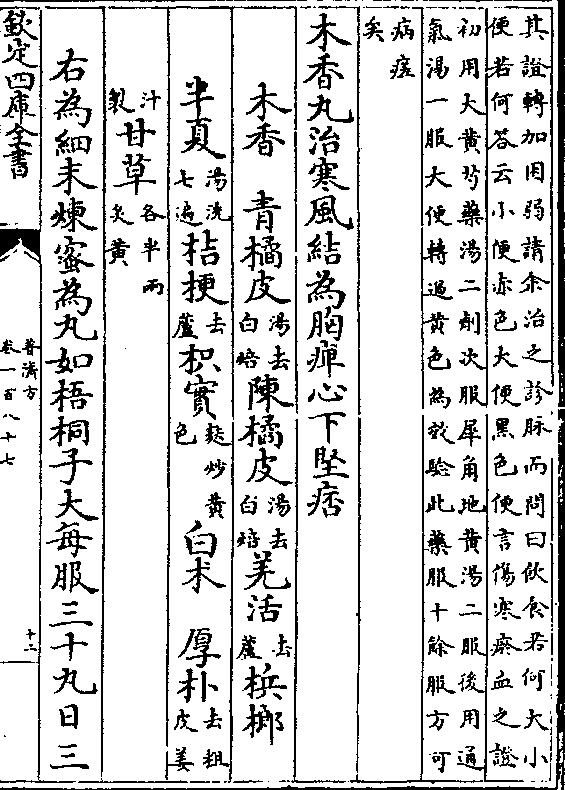 其證轉加困弱請余治之診脉而問曰飲食若何大小
便若何答云小便赤色大便黑色便言傷寒瘀血之證
初用大黃芍藥湯二劑次服犀角地黃湯二服後用通
氣湯一服大便轉過黃色為效驗此藥服十餘服方可
病瘥
矣
木香丸治寒風結為胸痺心下堅痞
木香 青橘皮湯去白焙陳橘皮湯去白焙羌活去蘆檳榔
半夏湯洗七遍桔梗去蘆枳實麩炒黃色 白术 厚朴去粗皮姜
汁製甘草各半兩炙黃
右為細末煉蜜為丸如梧桐子大每服三十丸日三
欽定四庫全書
普濟方
卷一百八十七
十二